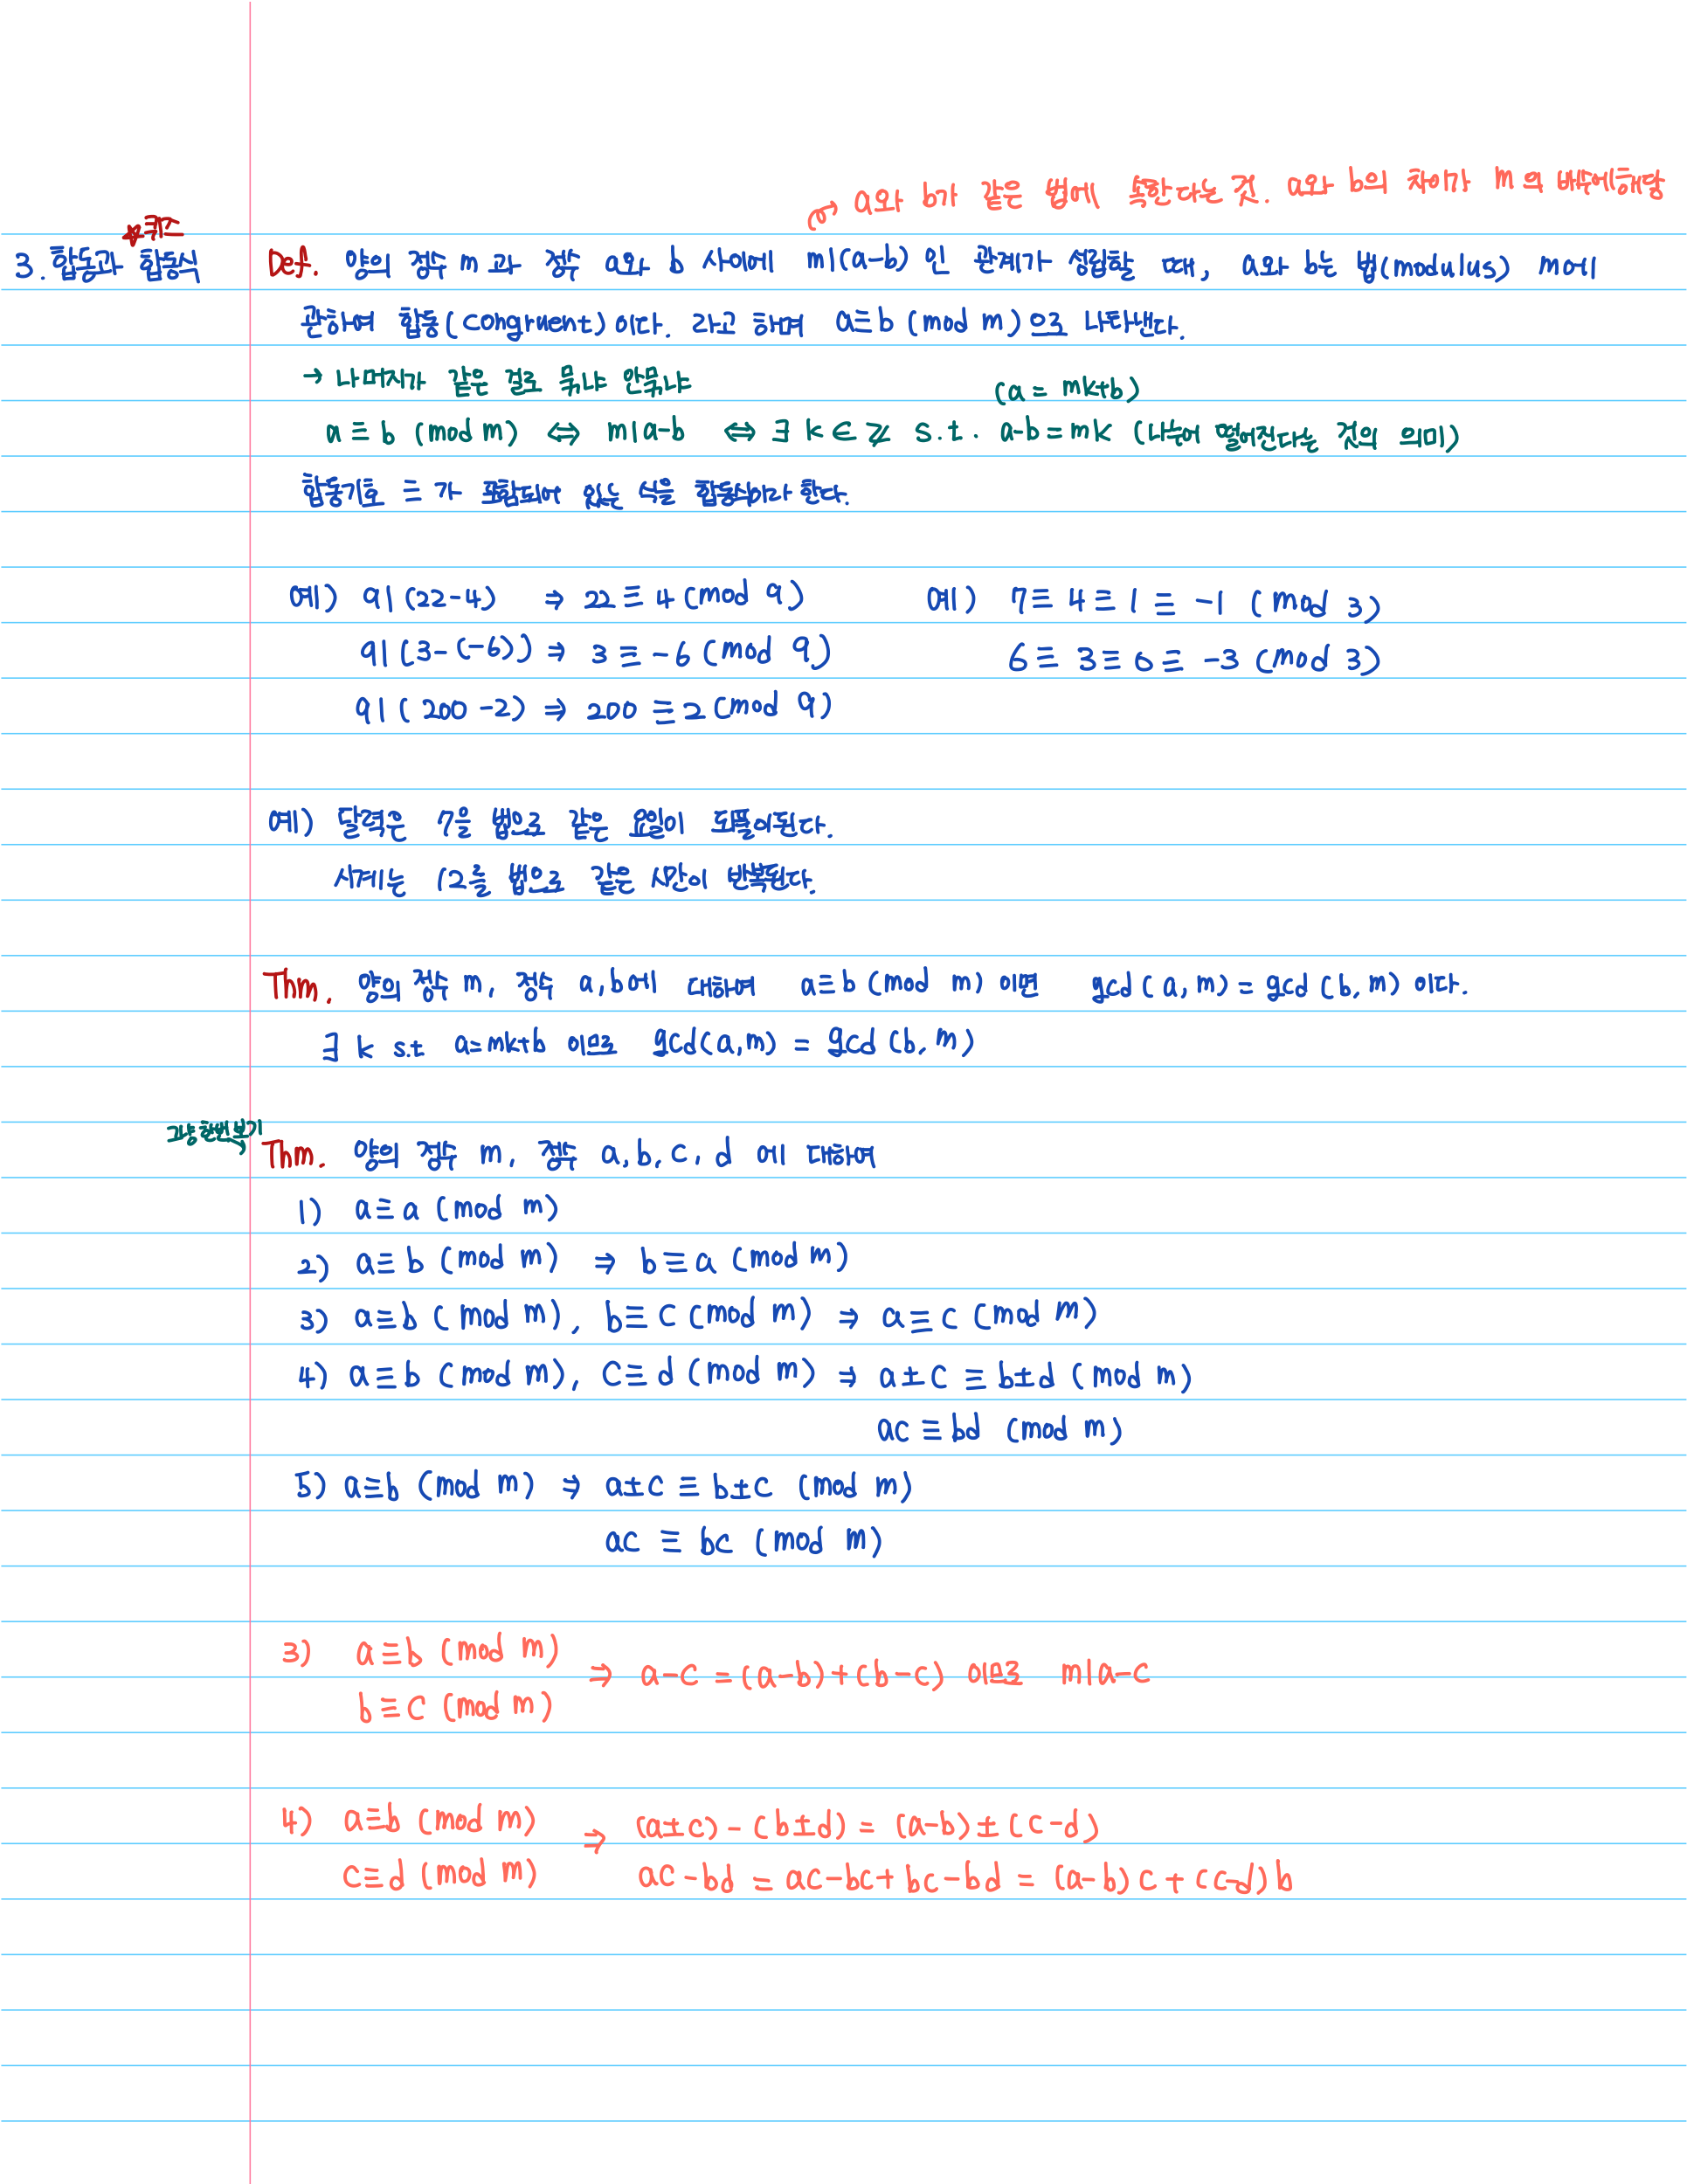 a와 b가 같은 법에 속한다는 것. a와 b의 차이가 m의 배수에해당
☆퀴즈
3. 합동과 합동식
Def. 양의 정수 m과 정수 a와 b 사이에 m|(a-b) 인 관계가 성립할 때, a와 b는 법(modulus) m에
관하여 합동(congruent)이다. 라고 하며 a≡b (mod m)으로 나타낸다.
→ 나머지가 같은 걸로 묶냐 안묶냐
(a = mk+b)
a ≡ b (mod m) ⇔ m|a-b ⇔ ∃ k ∈ ℤ s.t. a-b=mk (나누어 떨어진다는 것의 의미)
합동기호 ≡ 가 포함되어 있는 식을 합동식이라 한다.
예) 9|(22-4) ⇒ 22 ≡ 4 (mod 9) 예) 7≡ 4 ≡ 1 ≡ -1 (mod 3)
9|(3-(-6)) ⇒ 3 ≡ -6 (mod 9) 6 ≡ 3 ≡ 0 ≡ -3 (mod 3)
9|(200-2) ⇒ 200 ≡ 2 (mod 9)
예) 달력은 7을 법으로 같은 요일이 되풀이된다.
시계는 12를 법으로 같은 시간이 반복된다.
Thm. 양의 정수 m, 정수 a,b에 대하여 a≡b (mod m) 이면 gcd(a,m) = gcd(b,m) 이다.
∃ k s.t a=mk+b 이므로 gcd(a,m) = gcd(b,m)
그냥 한번 보기
Thm. 양의 정수 m, 정수 a,b,c,d 에 대하여
1) a≡a (mod m)
2) a≡b (mod m) ⇒ b≡a (mod m)
3) a≡b (mod m), b≡c (mod m) ⇒ a≡c (mod m)
4) a≡b (mod m), c≡d (mod m) ⇒ a±c ≡ b±d (mod m)
ac ≡ bd (mod m)
5) a≡b (mod m) ⇒ a±c ≡ b±c (mod m)
ac ≡ bc (mod m)
3) a≡b (mod m)
⇒ a-c = (a-b)+(b-c) 이므로 m|a-c
b≡c (mod m)
4) a≡b (mod m) ⇒ (a±c)-(b±d) = (a-b)±(c-d)
c≡d (mod m) ac-bd = ac-bc+bc-bd = (a-b)c+(c-d)b